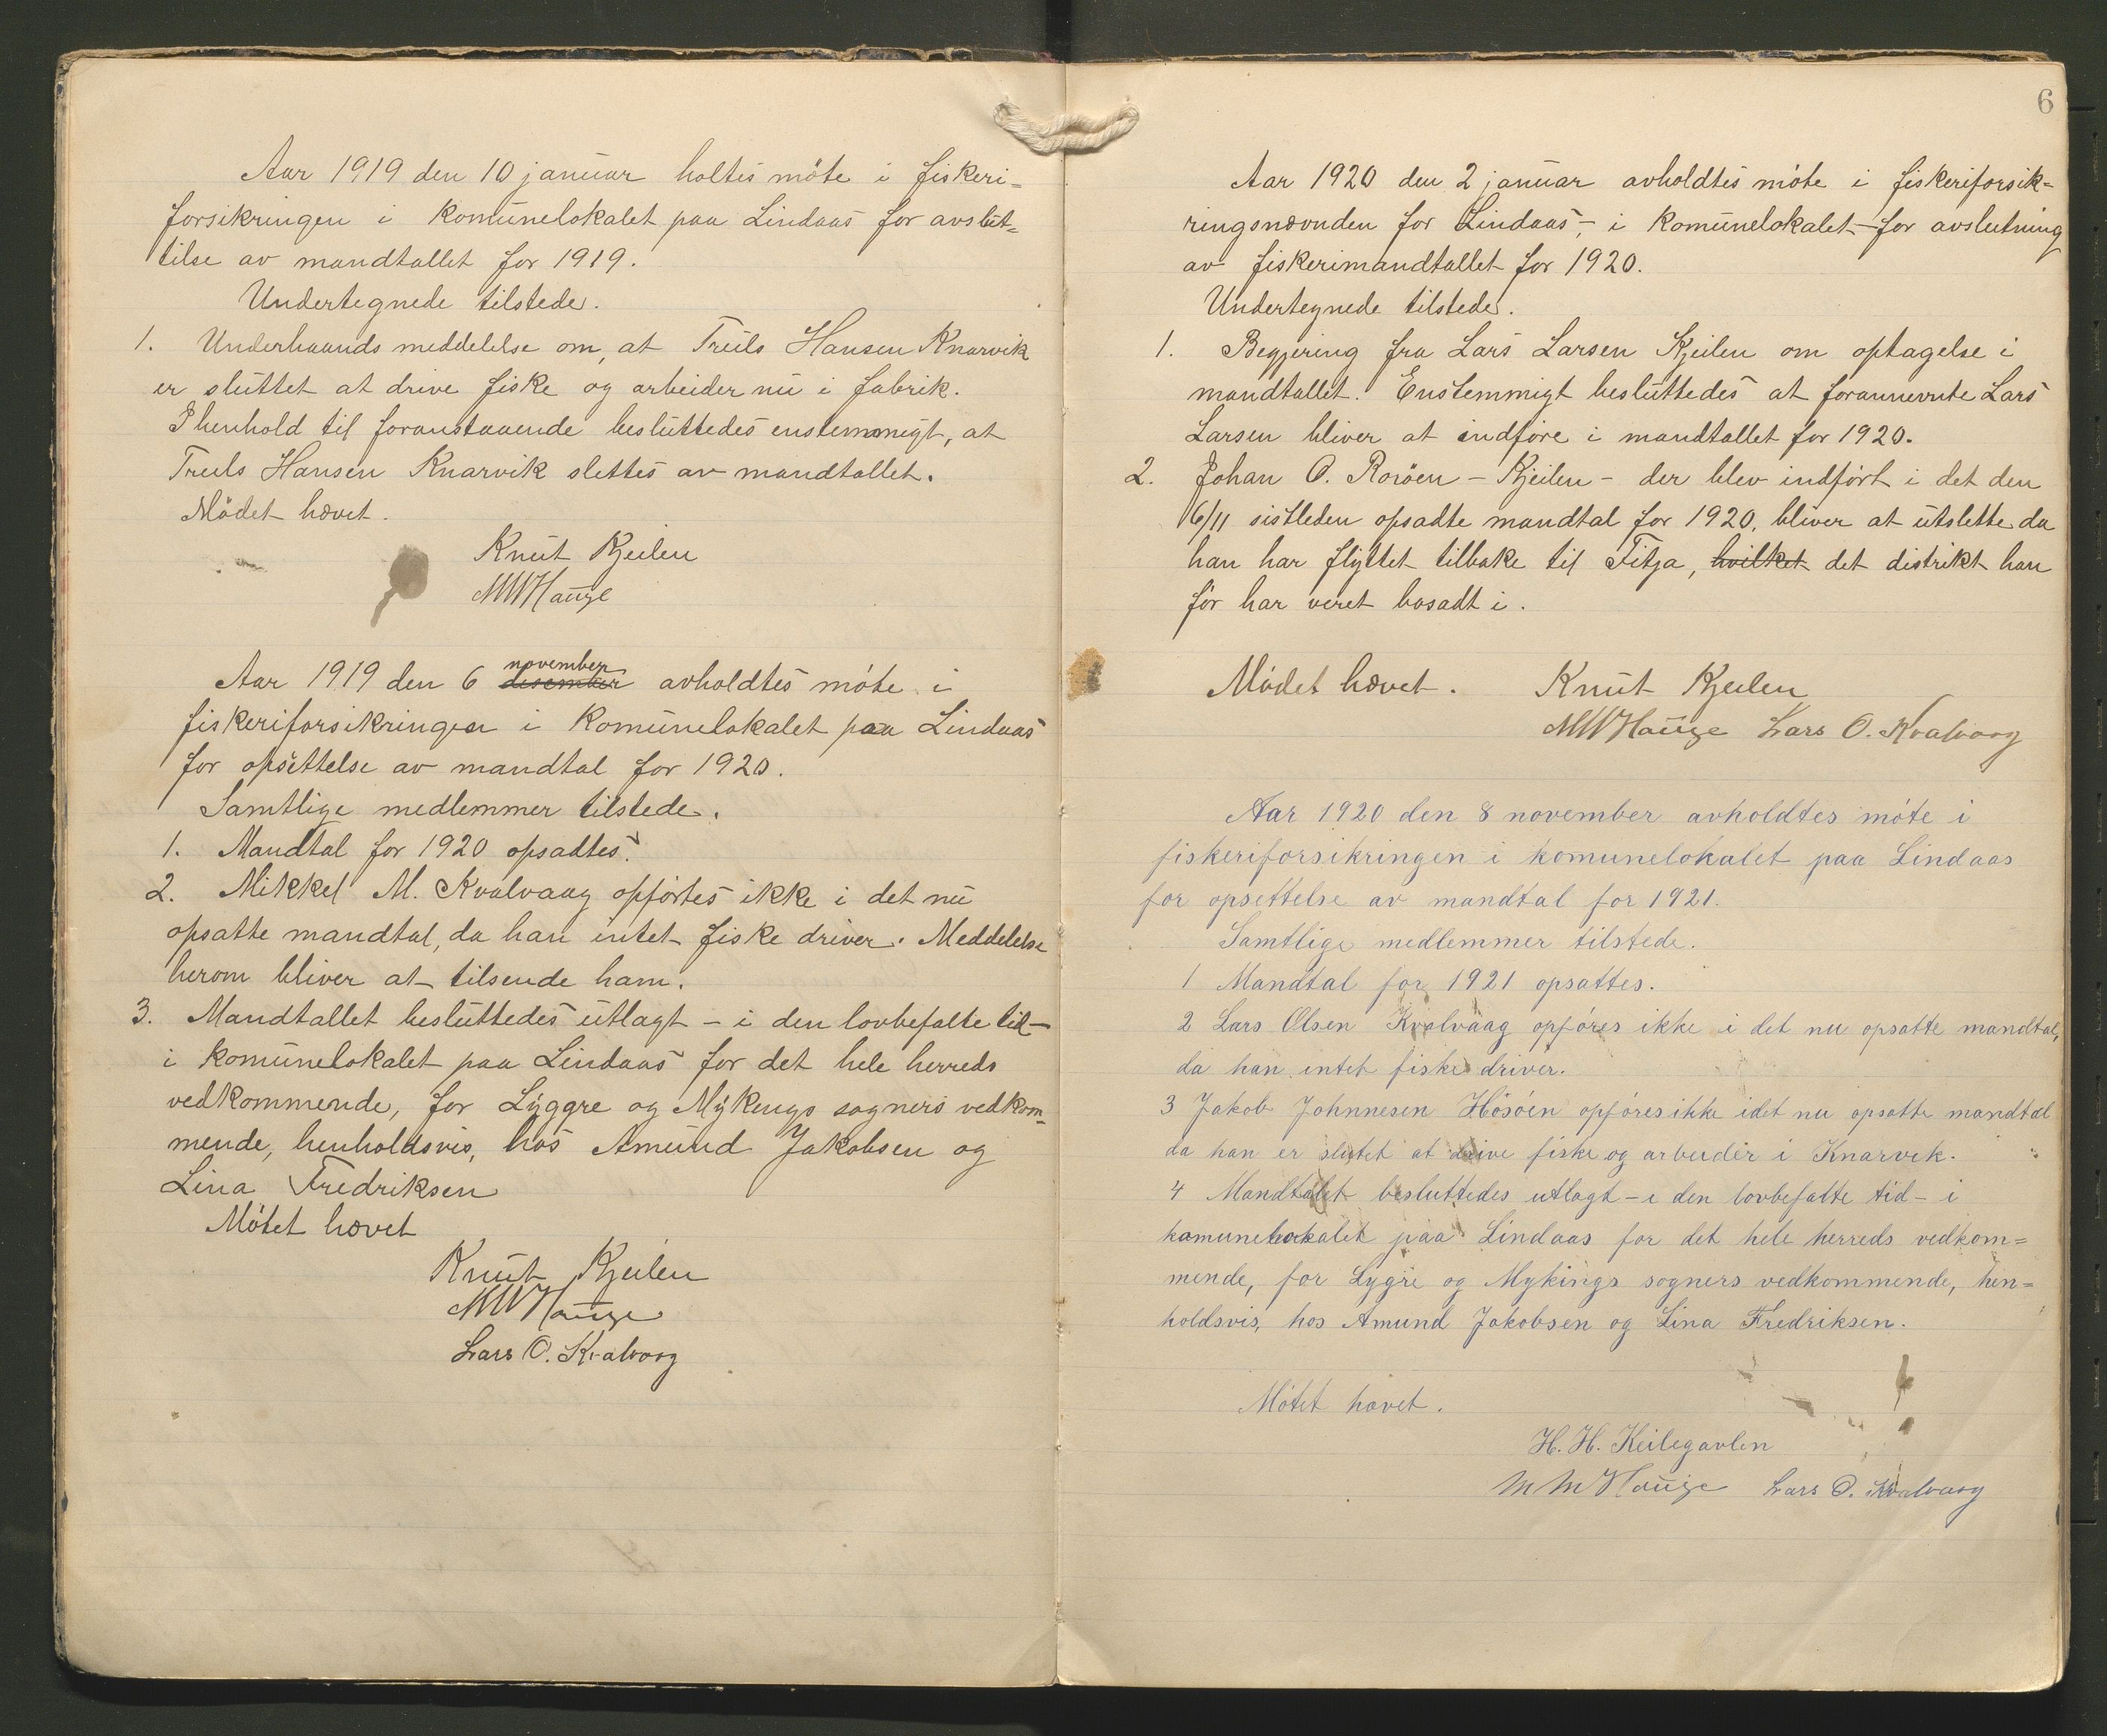 Aar 1919 den 10 januar holtes möte i fiskeri=
forsikringen i Komunelokalet paa Lindaas for avslut=
telse av mandtallet for 1919.
Undertegnede tilstede.
1. Underhaands meddelelse om, at Truls Hansen Knarvik
er sluttet at drive fiske og arbeider nu i fabrik.
I henhold til foranstaaende besluttedes enstemmigt, at
Truls Hansen Knarvik slettes av mandtallet.
Mödet hævet.
Knut Kjeilen
MMHauge
november
Aar 1919 den 6 desember avholdtes möte i
fiskeriforsikringen i Komunelokalet paa Lindaas
for opsettelse av mandtal for 1920.
Samtlige medlemmer tilstede.
1. Mandtal for 1920 opsadtes.
2. Mikkel M. Kvalvaag opförtes ikke i det nu
opsatte mandtal, da han intet fiske driver. Meddelelse
herom bliver at tilsende ham.
3. Mandtallet besluttedes utlagt - i den lovbefalte tid -
i Komunelokalet paa Lindaas for det hele herreds
vedkommende, for Lyggre og Mykings sogners vedkom=
mende, henholdsvis, hos Amund Jakobsen og
Lina Fredriksen
Mötet hævet
Knut Kjeilen
MMHauge
Lars O. Kvalvaag
6
Aar 1920 den 2 januar avholdtes möte i fiskeriforsik=
ringsnævnden for Lindaas, - i Komunelokalet - for avslutning
av fiskerimandtallet for 1920.
Undertegnede tilstede.
1. Begjering fra Lars Larsen Kjeilen om optagelse i
mandtallet. Enstemmigt besluttedes at forannevnte Lars
Larsen bliver at indföre i mandtallet for 1920.
2. Johan O. - Kjeilen - der blev indfört i det den
6/11 sistleden opsadte mandtal for 1920, bliver at utslette da
han har flyttet tilbake til Fitja, hvilket det distrikt han
för har veret bosadt i.
Mödet hævet. Knut Kjeilen
MMHauge Lars O. Kvalvaag
Aar 1920 den 8 november avholdtes möte i
fiskeriforsikringen i komunelokalet paa Lindaas
for opsettelse av mandtal for 1921.
Samtlige medlemmer tilstede.
1 Mandtal for 1921 opsattes.
2 Lars Olsen Kvalvaag opföres ikke i det nu opsatte mandtal,
da han intet fiske driver.
3 Jakob Johnnesen Hösöen opföres ikke idet nu opsatte mandtal
da han er slutet at drive fiske og arbeider i Knarvik.
4 Mandtalet besluttedes utlagt - i den lovbefalte tid - i
komunelokalet paa Lindaas for det hele herreds vedkom=
mende, for Lygre og Mykings sogners vedkommende, hen=
holdsvis, hos Amund Jakobsen og Lina Fredriksen.
Mötet hævet.
H. H. Keilegavlen
MMHauge Lars O. Kvalvaag